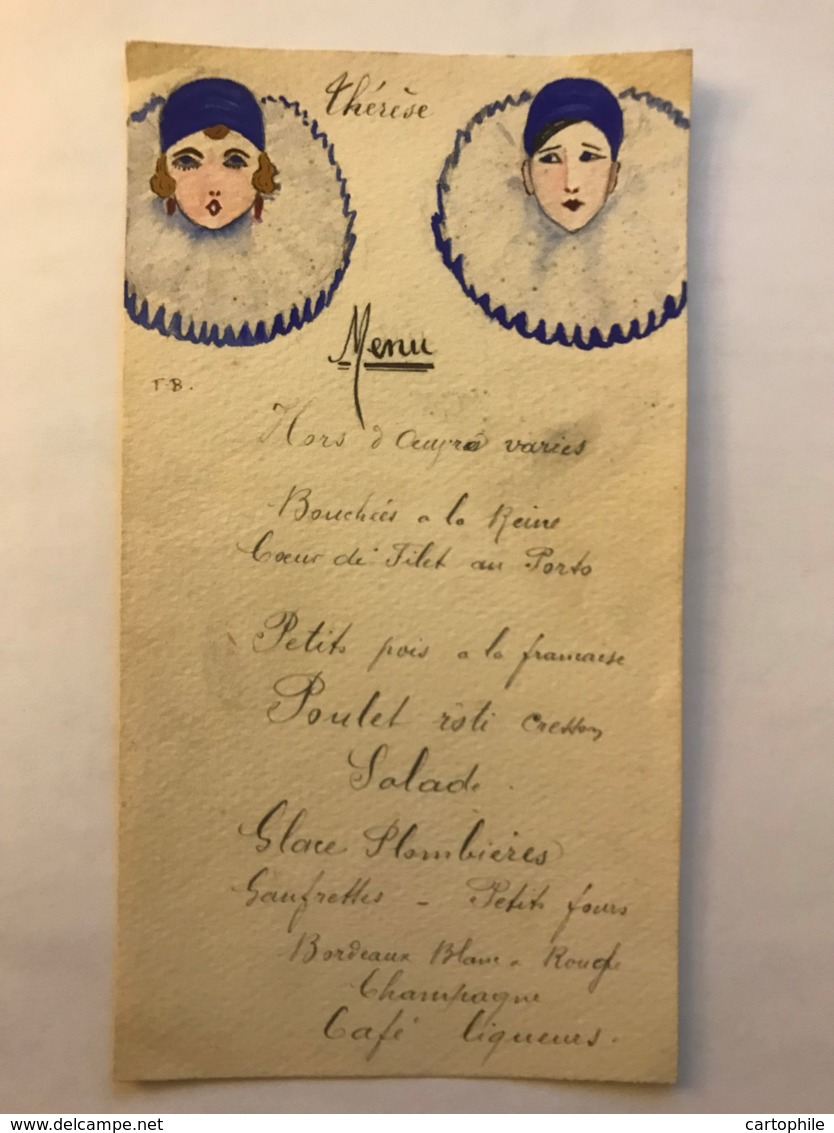 Thérèse
Menu
T.B.
Hors d'Oeuvre variés
Bouchées a la Reine
Coeur de Filet au Porto
Petits pois a la francaise
Poulet rôti cresson
Salade.
Glace Plombières
Gaufrettes - Petits fours
Bordeaux Blanc & Rouge
Champagne
Café liqueurs.
www.delcampe.net
cartophile